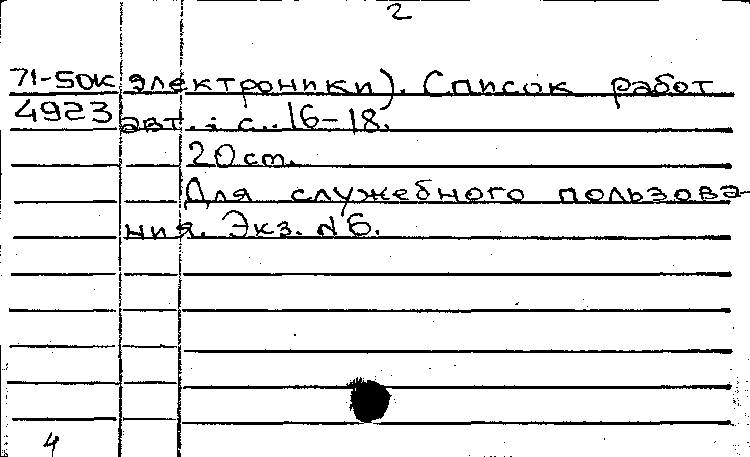 2
71-50к электроники). Список работ
4923 авт.: с. 16-18.
20 ст.
Для служебного пользова-
ния. Экз. №6.
4